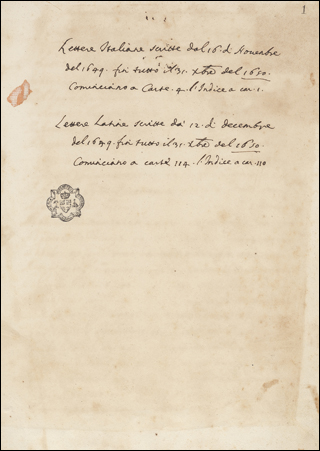 1
Lettere Italiane scritte dal 16. di Novembre
del 1649. fin tutto il 31. Xbre del 1650.
Cominciano a Carte. 4. l'Indice a car. 1.
Lettere Latine scritte da' 12. di Decembre
del 1649. fin tutto il 31. Xbre del 1650.
Cominciano a carte 114. l'Indice a car. 110